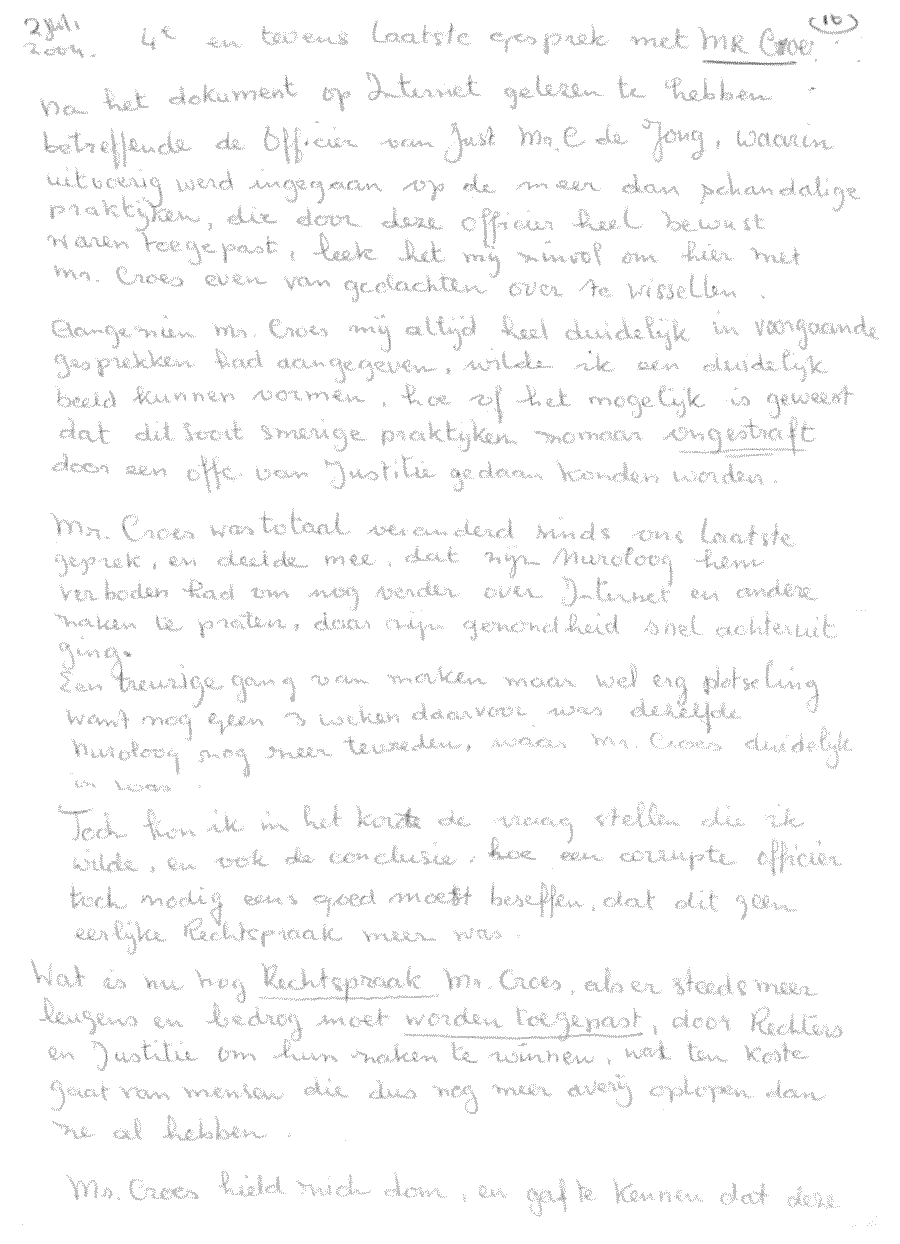 2 Juli
2004.
(16)
4e en tevens laatste gesprek met MR Croes.
Na het dokument op Internet gelezen te hebben
betreffende de Officier van Just Mr. C de Jong, waarin
uitvoerig werd ingegaan op de meer dan schandalige
praktijken, die door deze officier heel bewust
waren toegepast, leek het mij zinvol om hier met
mr. Croes even van gedachten over te wissellen.
Aangezien mr. Croes mij altijd heel duidelijk in voorgaande
gesprekken had aangegeven, wilde ik een duidelijk
beeld kunnen vormen, hoe of het mogelijk is geweest
dat dit soort smerige praktijken zomaar ongestraft
door een offc. van Justitie gedaan konden worden.
Mr. Croes was totaal veranderd sinds ons laatste
geprek, en deelde mee, dat zijn Nuroloog hem
verboden had om nog verder over Internet en andere
zaken te praten, daar zijn gezondheid snel achteruit
ging.
Een treurige gang van zaken maar wel erg plotseling
want nog geen 3 weken daarvoor was dezelfde
nuroloog nog zeer tevreden, waar mr. Croes duidelijk
in was.
Toch kon ik in het korte de vraag stellen die ik
wilde, en ook de conclusie, hoe een corrupte officier
toch nodig eens goed moest beseffen, dat dit geen
eerlijke Rechtspraak meer was.
Wat is nu nog Rechtspraak Mr. Croes, als er steeds meer
leugens en bedrog moet worden toegepast, door Rechters
en Justitie om hun zaken te winnen, wat ten koste
gaat van mensen die dus nog meer averij oplopen dan
ze al hebben.
Mr. Croes hield zich dom, en gaf te kennen dat deze